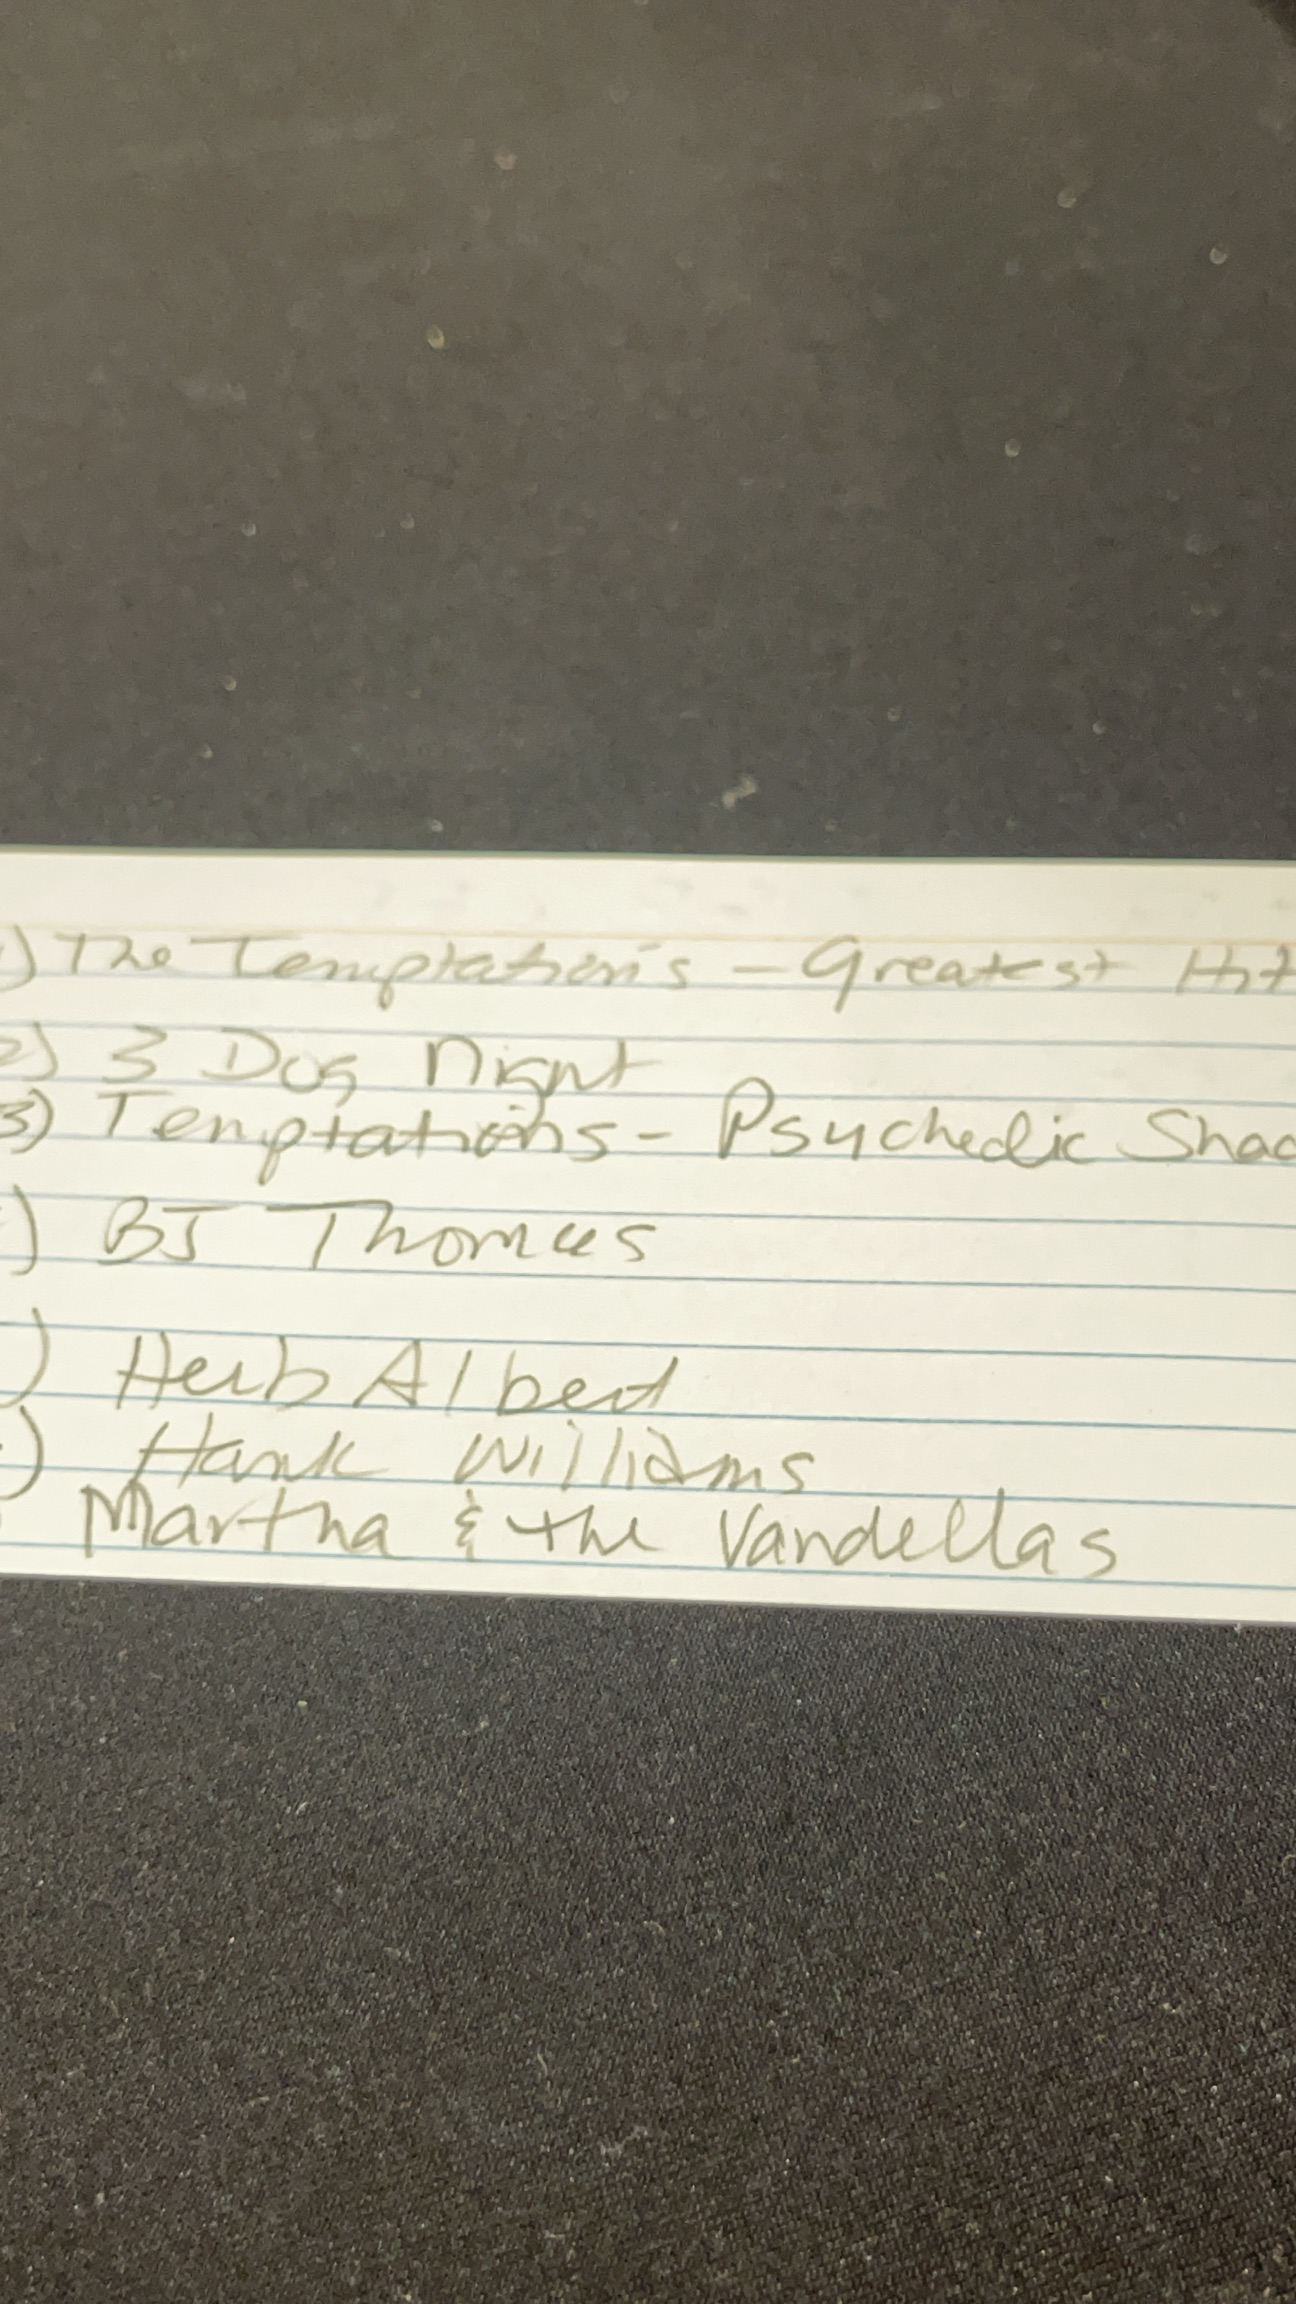 1) The Temptation's - Greatest Hit
2) 3 Dog Night
3) Temptations - Psychedlic Shad
) BJ Thomas
) Herb Albert
) Hank Williams
Martha & the Vandellas